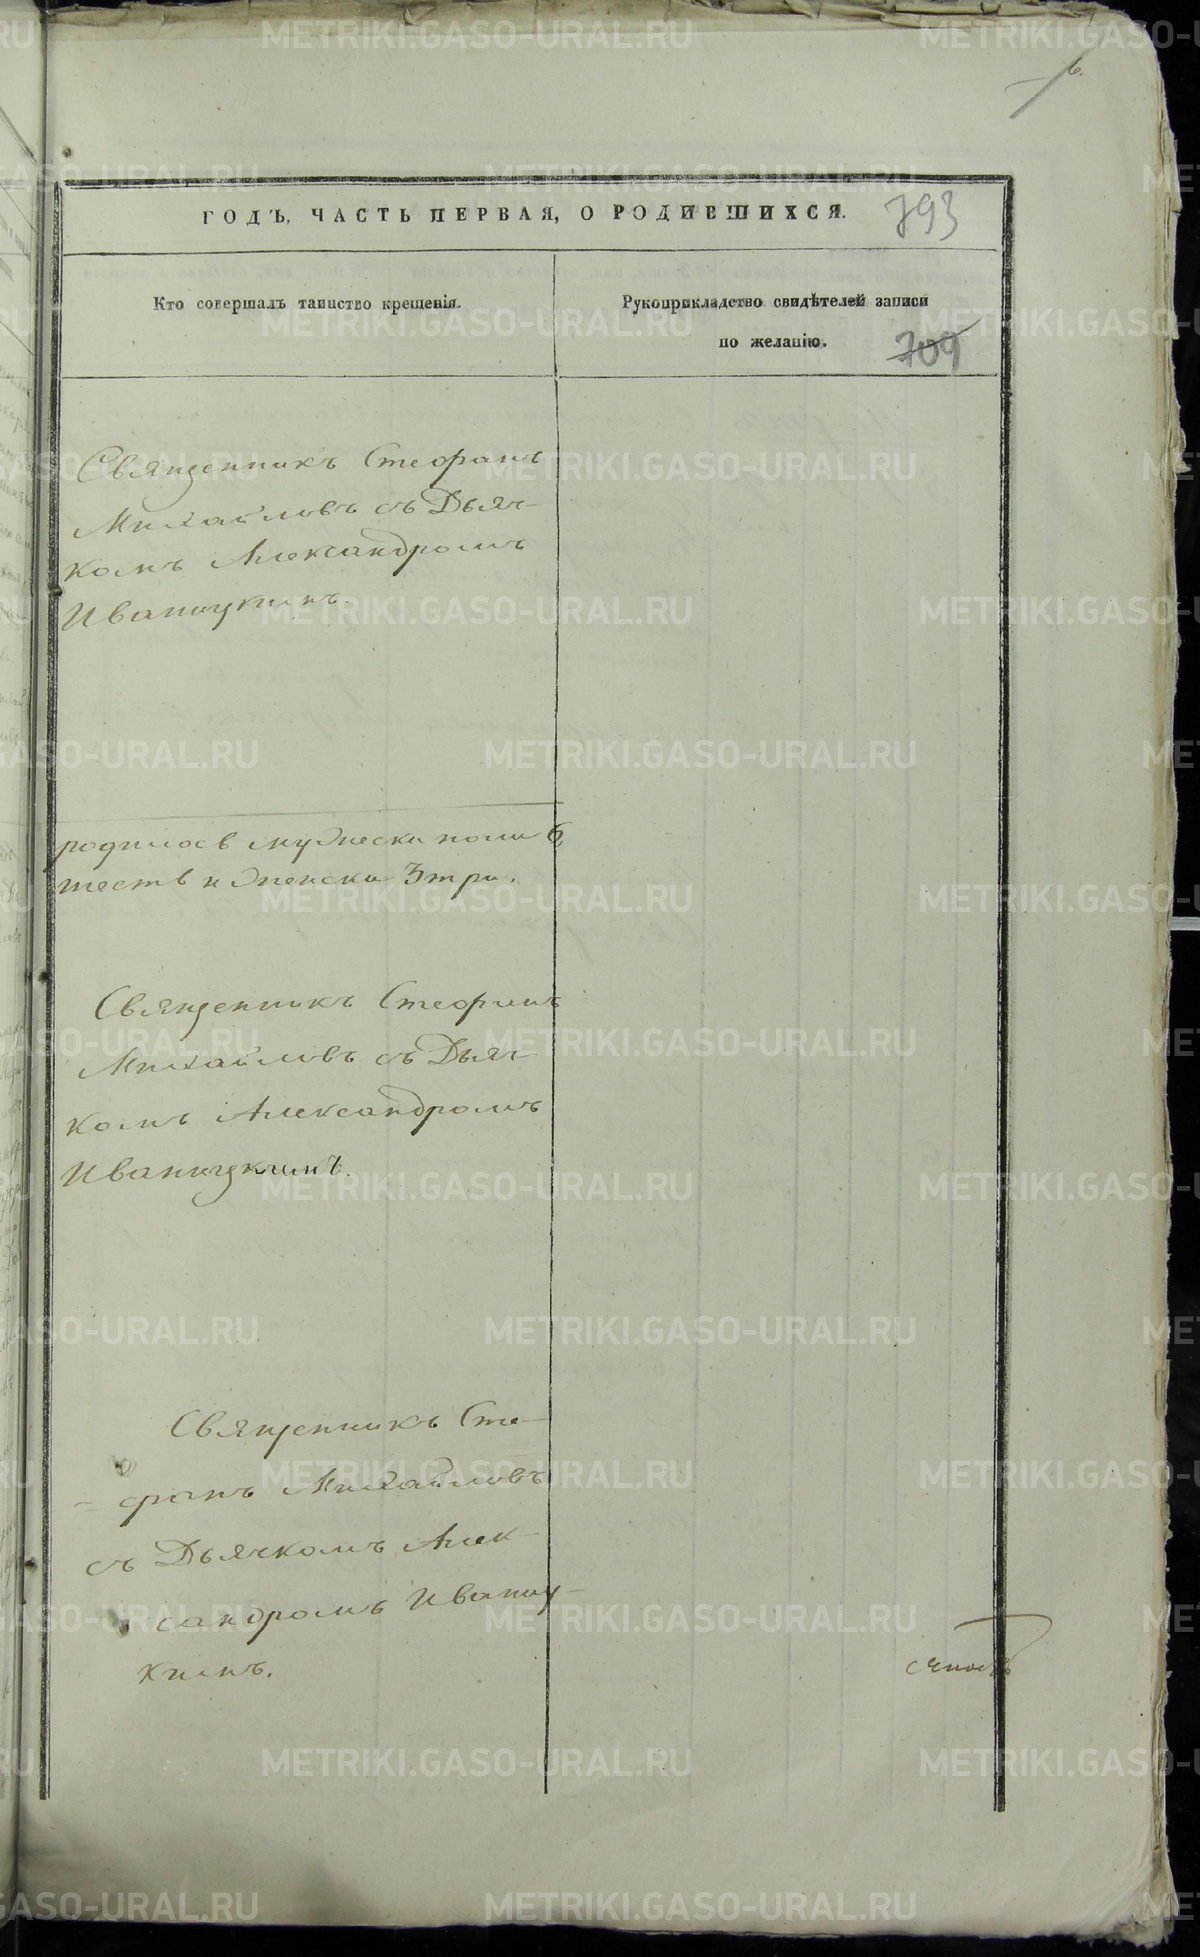 6.
ГОДЪ, ЧАСТЬ ПЕРВАЯ, О РОДИВШИХСЯ.
793
Кто совершалъ таинство крещенія.
Рукоприкладство свидѣтелей записи
по желанію.
709
Священникъ Стефанъ
Михайловъ съ Дьяч-
комъ Александромъ
Иваницкимъ.
родилось мужеска пола 6,
шесть и женска 3 три.
Священникъ Стефанъ
Михайловъ съ Дьяч-
комъ Александромъ
Иваницкимъ.
Священникъ Сте-
фанъ Михайловъ
съ Дьячкомъ Алек-
сандромъ Иваниц-
кимъ.
METRIKI.GASO-URAL.RU